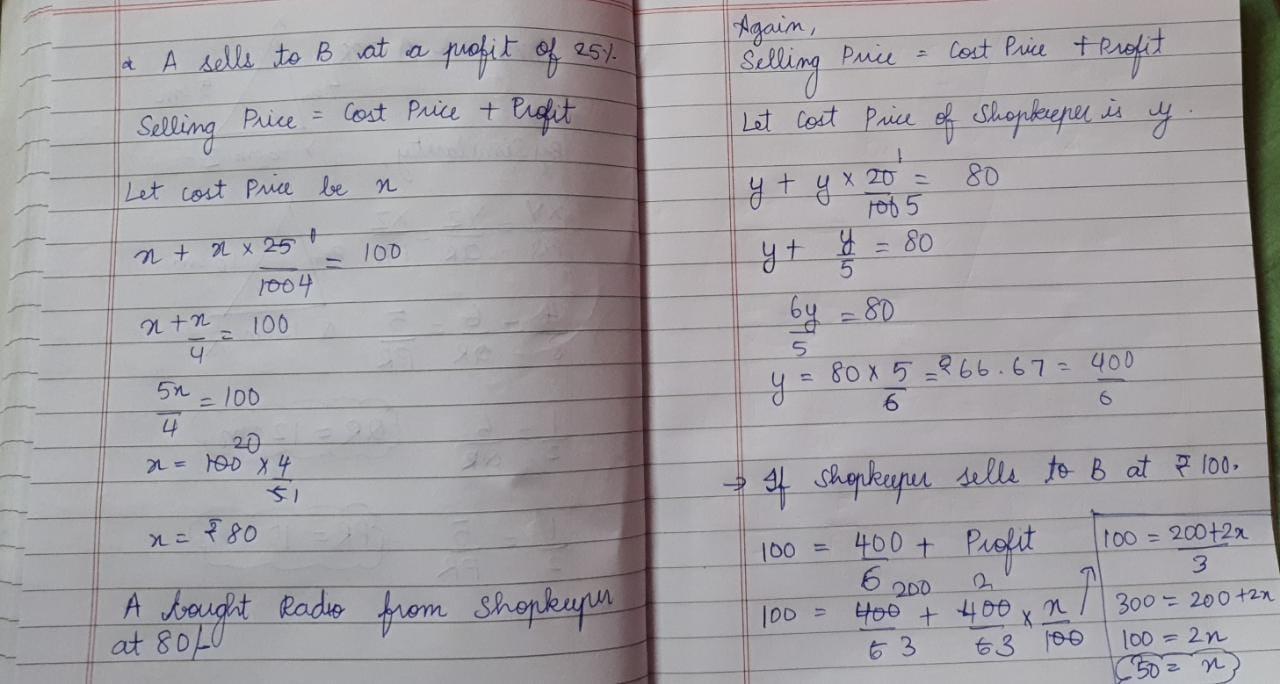 * A sells to B at a profit of 25%.
Selling Price = Cost Price + Profit
Let cost Price be x
x + x × 25/100 = 100
1
4
x + x/4 = 100
5x/4 = 100
20
x = 100 × 4/5
1
x = ₹80
A bought Radio from Shopkeeper
at 80/-
Again,
Selling Price = Cost Price + Profit
Let Cost Price of Shopkeeper is y.
y + y × 20/100 = 80
1
5
y + y/5 = 80
6y/5 = 80
y = 80 × 5/6 = ₹66.67 = 400/6
→ If Shopkeeper sells to B at ₹100.
100 = 400/6 + Profit
200 2
100 = 400/6 + 400/6 × x/100
3 3
100 = 200+2x/3
300 = 200+2x
100 = 2x
50 = x